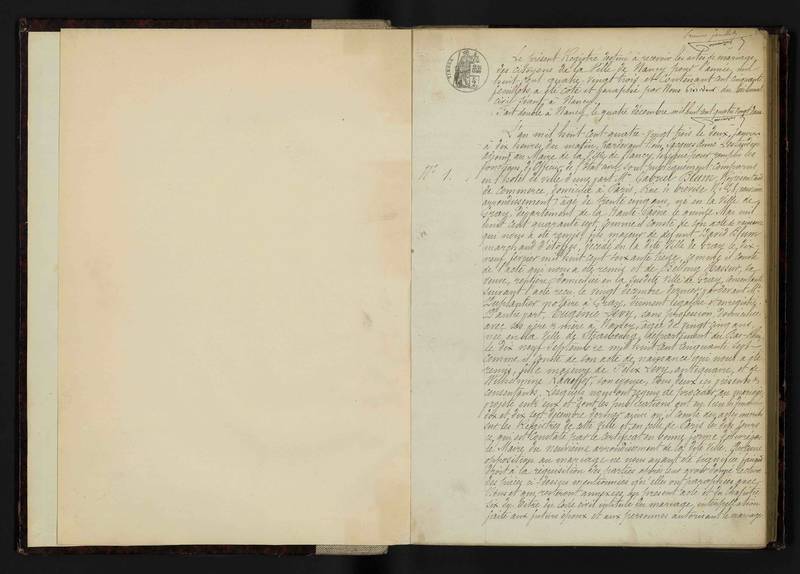 Le présent Registre destiné à recevoir les actes de mariage
des citoyens de la Ville de Nancy pour l'année mil
huit cent quatre vingt trois et contenant cent cinquante
feuillets a été coté et paraphé par Nous du tribunal
civil séant à Nancy
Fait double à Nancy, le quatre décembre mil huit cent quatre vingt deux
N° 1.
L'an mil huit cent quatre vingt trois le deux janvier
à dix heures du matin, pardevant Nous, Jacques
adjoint au Maire de la Ville de Nancy, délégué pour remplir les
fonctions d'Officier de l'État civil, sont publiquement comparus
en l'hôtel de ville d'une part Mr Gabriel Blum, Représentant
de Commerce, domicilié à Paris, Rue de Trévise N°
arrondissement âgé de trente cinq ans, né en la Ville de
Gray, département de la Haute Saône le quinze Mai mil
huit cent quarante sept, comme il conste de son acte de naissance
qui nous a été remis, fils majeur de défunt David Blum
marchand d'étoffes, décédé en la dite Ville de Gray le dix
neuf février mil huit cent soixante treize, comme il conste
de l'acte qui nous a été remis et de sa
veuve, rentière, domiciliée en la susdite ville de Gray, consentante
suivant l'acte reçu le vingt décembre dernier, pardevant Me
notaire à Gray, dûment légalisé et enregistré
D'autre part, Eugénie Lévy, sans profession, domiciliée
avec ses père et mère à Nancy, âgée de vingt cinq ans
née en la Ville de Strasbourg, département du Bas-Rhin
le dix neuf Septembre mil huit cent cinquante sept
comme il conste de son acte de naissance qui nous a été
remis, fille majeure de Félix Lévy, antiquaire, et de
Wilhelmine son épouse, tous deux ici présents et
consentants. Lesquels nous ont requis de procéder au mariage
projeté entre eux et dont les publications ont eu lieu les dimanches
dix et dix sept décembre dernier ainsi qu'il conste des actes inscrits
sur les Registres de cette Ville et en celle de Paris les dits jours
ce qui est constaté par le certificat en bonne forme délivré par
le Maire du neuvième arrondissement de la dite Ville. Aucune
opposition au mariage ne nous ayant été signifiée faisant
droit à la réquisition des parties après leur avoir donné lecture
des pièces ci-dessus mentionnées qu'elles ont paraphées avec
Nous et qui resteront annexées au présent acte et du chapitre
six du titre du code civil intitulé du mariage, interpellation
faite aux futurs époux et aux personnes autorisant le mariage